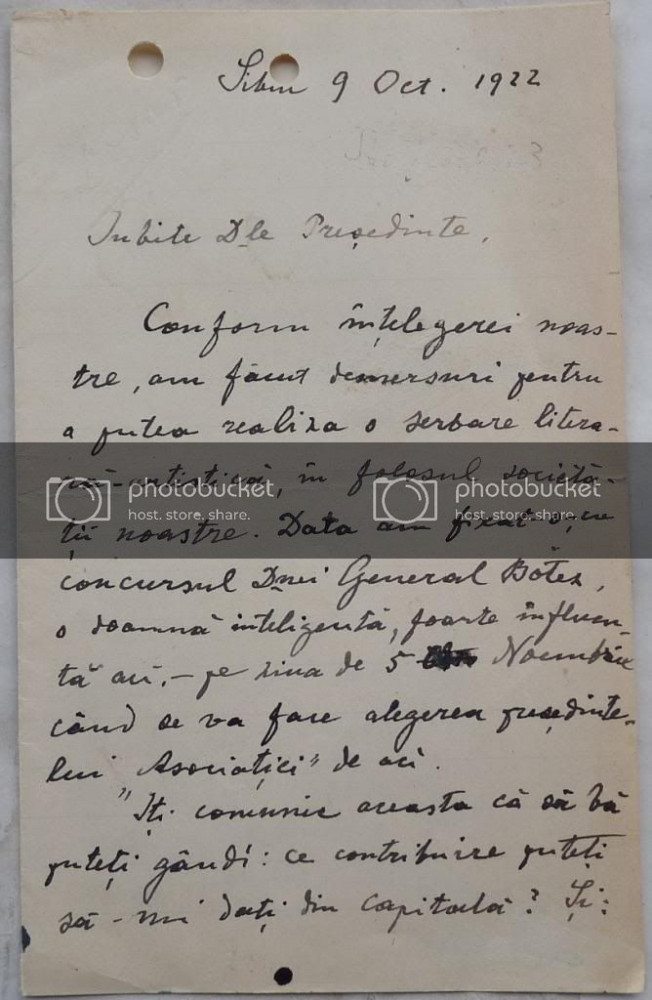 Sibiu 9 Oct. 1922
Iubite Dle Președinte,
Conform înțelegerei noas-
tre, am făcut demersuri pentru
a putea realiza o serbare litera-
ră-artistică, în folosul societă-
photobucket photobucket
host. store. share. host. store. share.
ții noastre. Data am fixat-o, cu
concursul Dnei General Botez,
o doamnă inteligentă, foarte influen-
tă aci, – pe ziua de 5 Noembrie
când se va face alegerea președinte-
lui „Asociației" de aci.
Iți comunic aceasta că să Vă
puteți gândi: ce contribuire puteți
să-mi dați din capitală? Și: